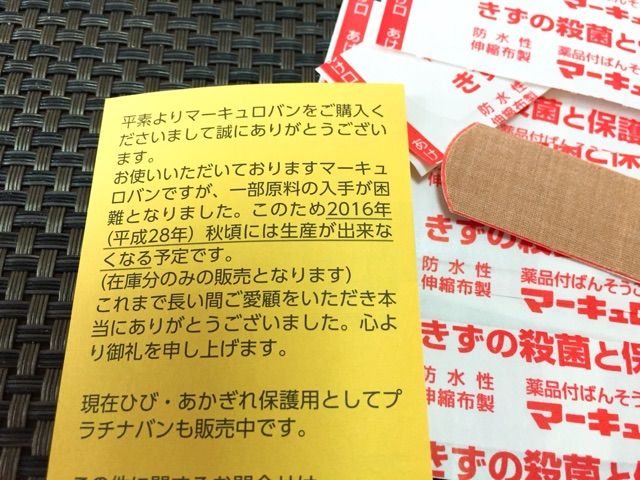 平素よりマーキュロバンをご購入く
ださいまして誠にありがとうござい
ます。
お使いいただいておりますマーキュ
ロバンですが、一部原料の入手が困
難となりました。このため2016年
(平成28年) 秋頃には生産が出来な
くなる予定です。
(在庫分のみの販売となります)
これまで長い間ご愛顧をいただき本
当にありがとうございました。心よ
り御礼を申し上げます。
現在ひび・あかぎれ保護用としてプ
ラチナバンも販売中です。
この件に関するお問合せは
あけ
きずの殺菌と保
防水性
伸縮布製
薬品付ばんそう
マーキュ
防水性
伸縮布製
あけ
菌と保護
きずの殺菌
防水性
伸縮布製
薬品付ばんそうこ
マーキュロバ
きずの殺菌と保
防水性
伸縮布製
薬品付ばんそう
マーキュロ
きずの殺菌と